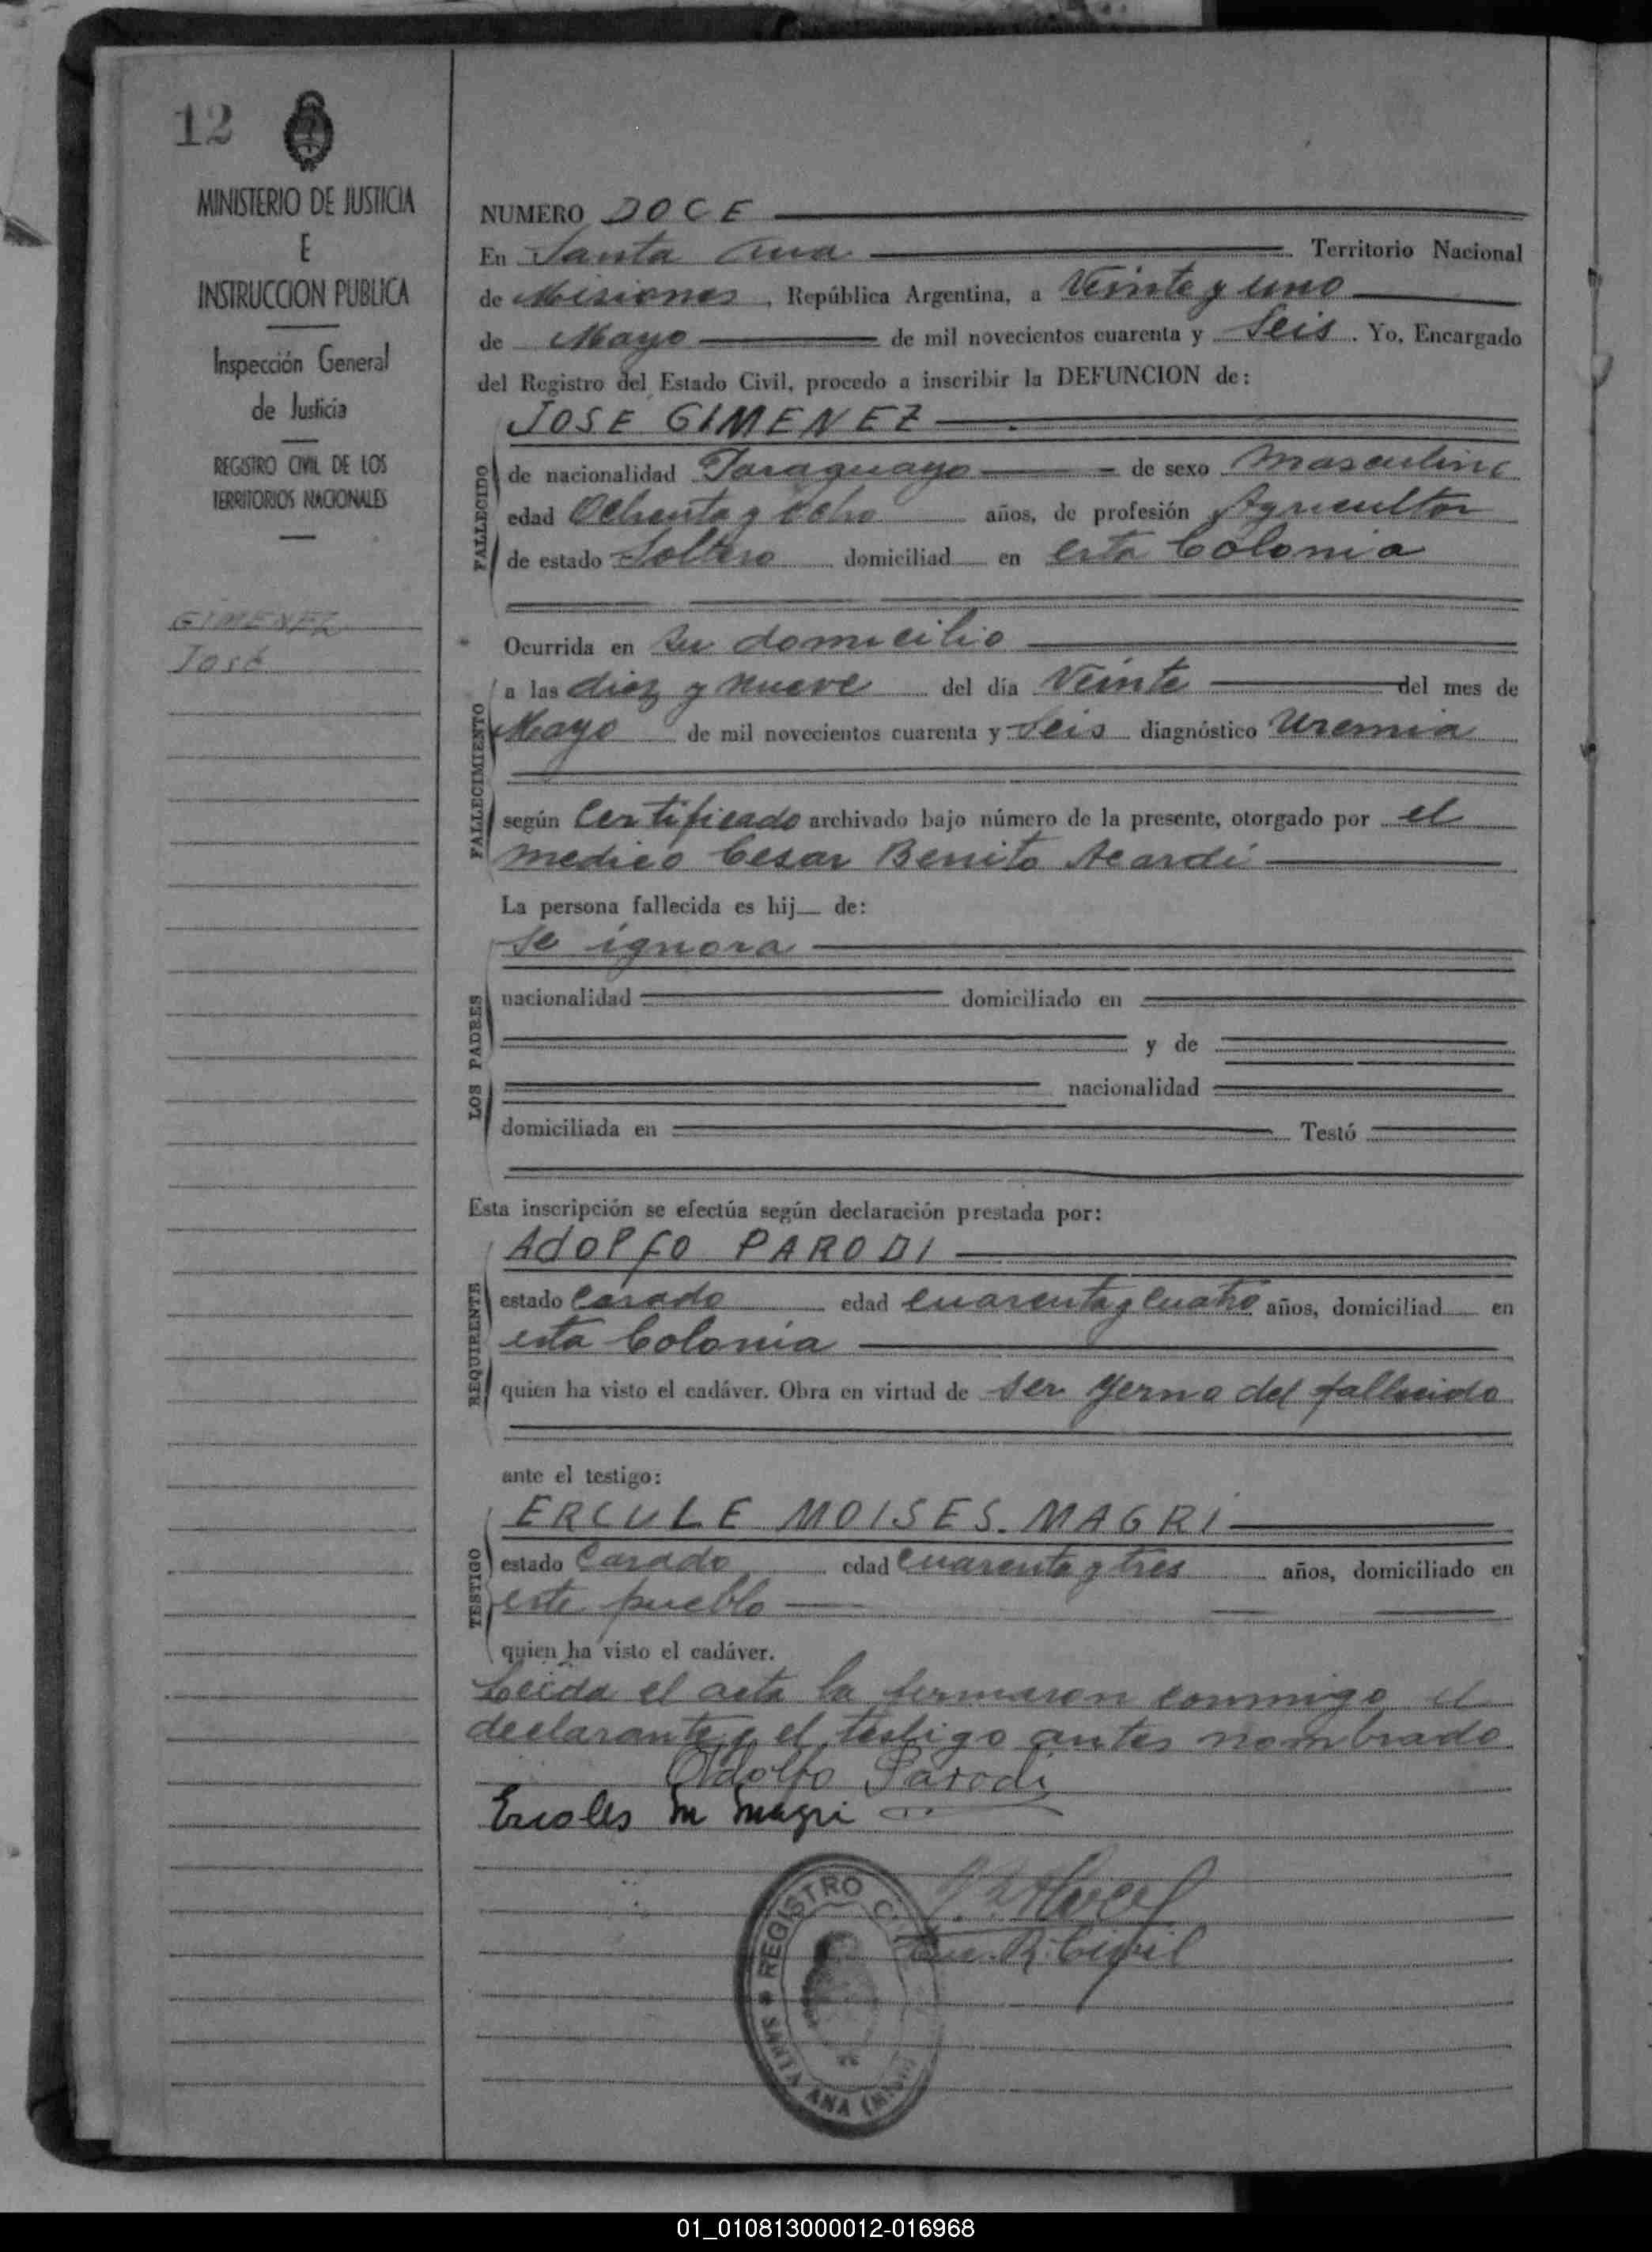 12
MINISTERIO DE JUSTICIA
E
INSTRUCCION PUBLICA
Inspección General
de Justicia
REGISTRO CIVIL DE LOS
TERRITORIOS NACIONALES
GIMENEZ
José
NUMERO DOCE
En Santa Ana Territorio Nacional
de Misiones, República Argentina, a Veinte y uno
de Mayo de mil novecientos cuarenta y Seis. Yo, Encargado
del Registro del Estado Civil, procedo a inscribir la DEFUNCION de:
JOSE GIMENEZ
FALLECIDO
de nacionalidad Paraguayo de sexo Masculino
edad Ochenta y ocho años, de profesión Agricultor
de estado Soltero domiciliad en esta Colonia
Ocurrida en su domicilio
FALLECIMIENTO
a las diez y nueve del día Veinte del mes de
Mayo de mil novecientos cuarenta y Seis diagnóstico Uremia
según Certificado archivado bajo número de la presente, otorgado por el
medico Cesar Benito Acardi
La persona fallecida es hij de:
se ignora
LOS PADRES
nacionalidad domiciliado en
y de
nacionalidad
domiciliada en Testó
Esta inscripción se efectúa según declaración prestada por:
AdOLFO PARODI
REQUIRENTE
estado Casado edad cuarenta y cuatro años, domiciliad en
esta Colonia
quien ha visto el cadáver. Obra en virtud de ser yerno del fallecido
ante el testigo:
ERCULE MOISES MAGRI
TESTIGO
estado Casado edad cuarenta y tres años, domiciliado en
este pueblo
quien ha visto el cadáver.
Leida el acta la firmaron conmigo el
declarante y el testigo antes nombrado
Adolfo Parodi
Ercoles M Magri
Enc. R. Civil
REGISTRO C
SANTA ANA
01_010813000012-016968